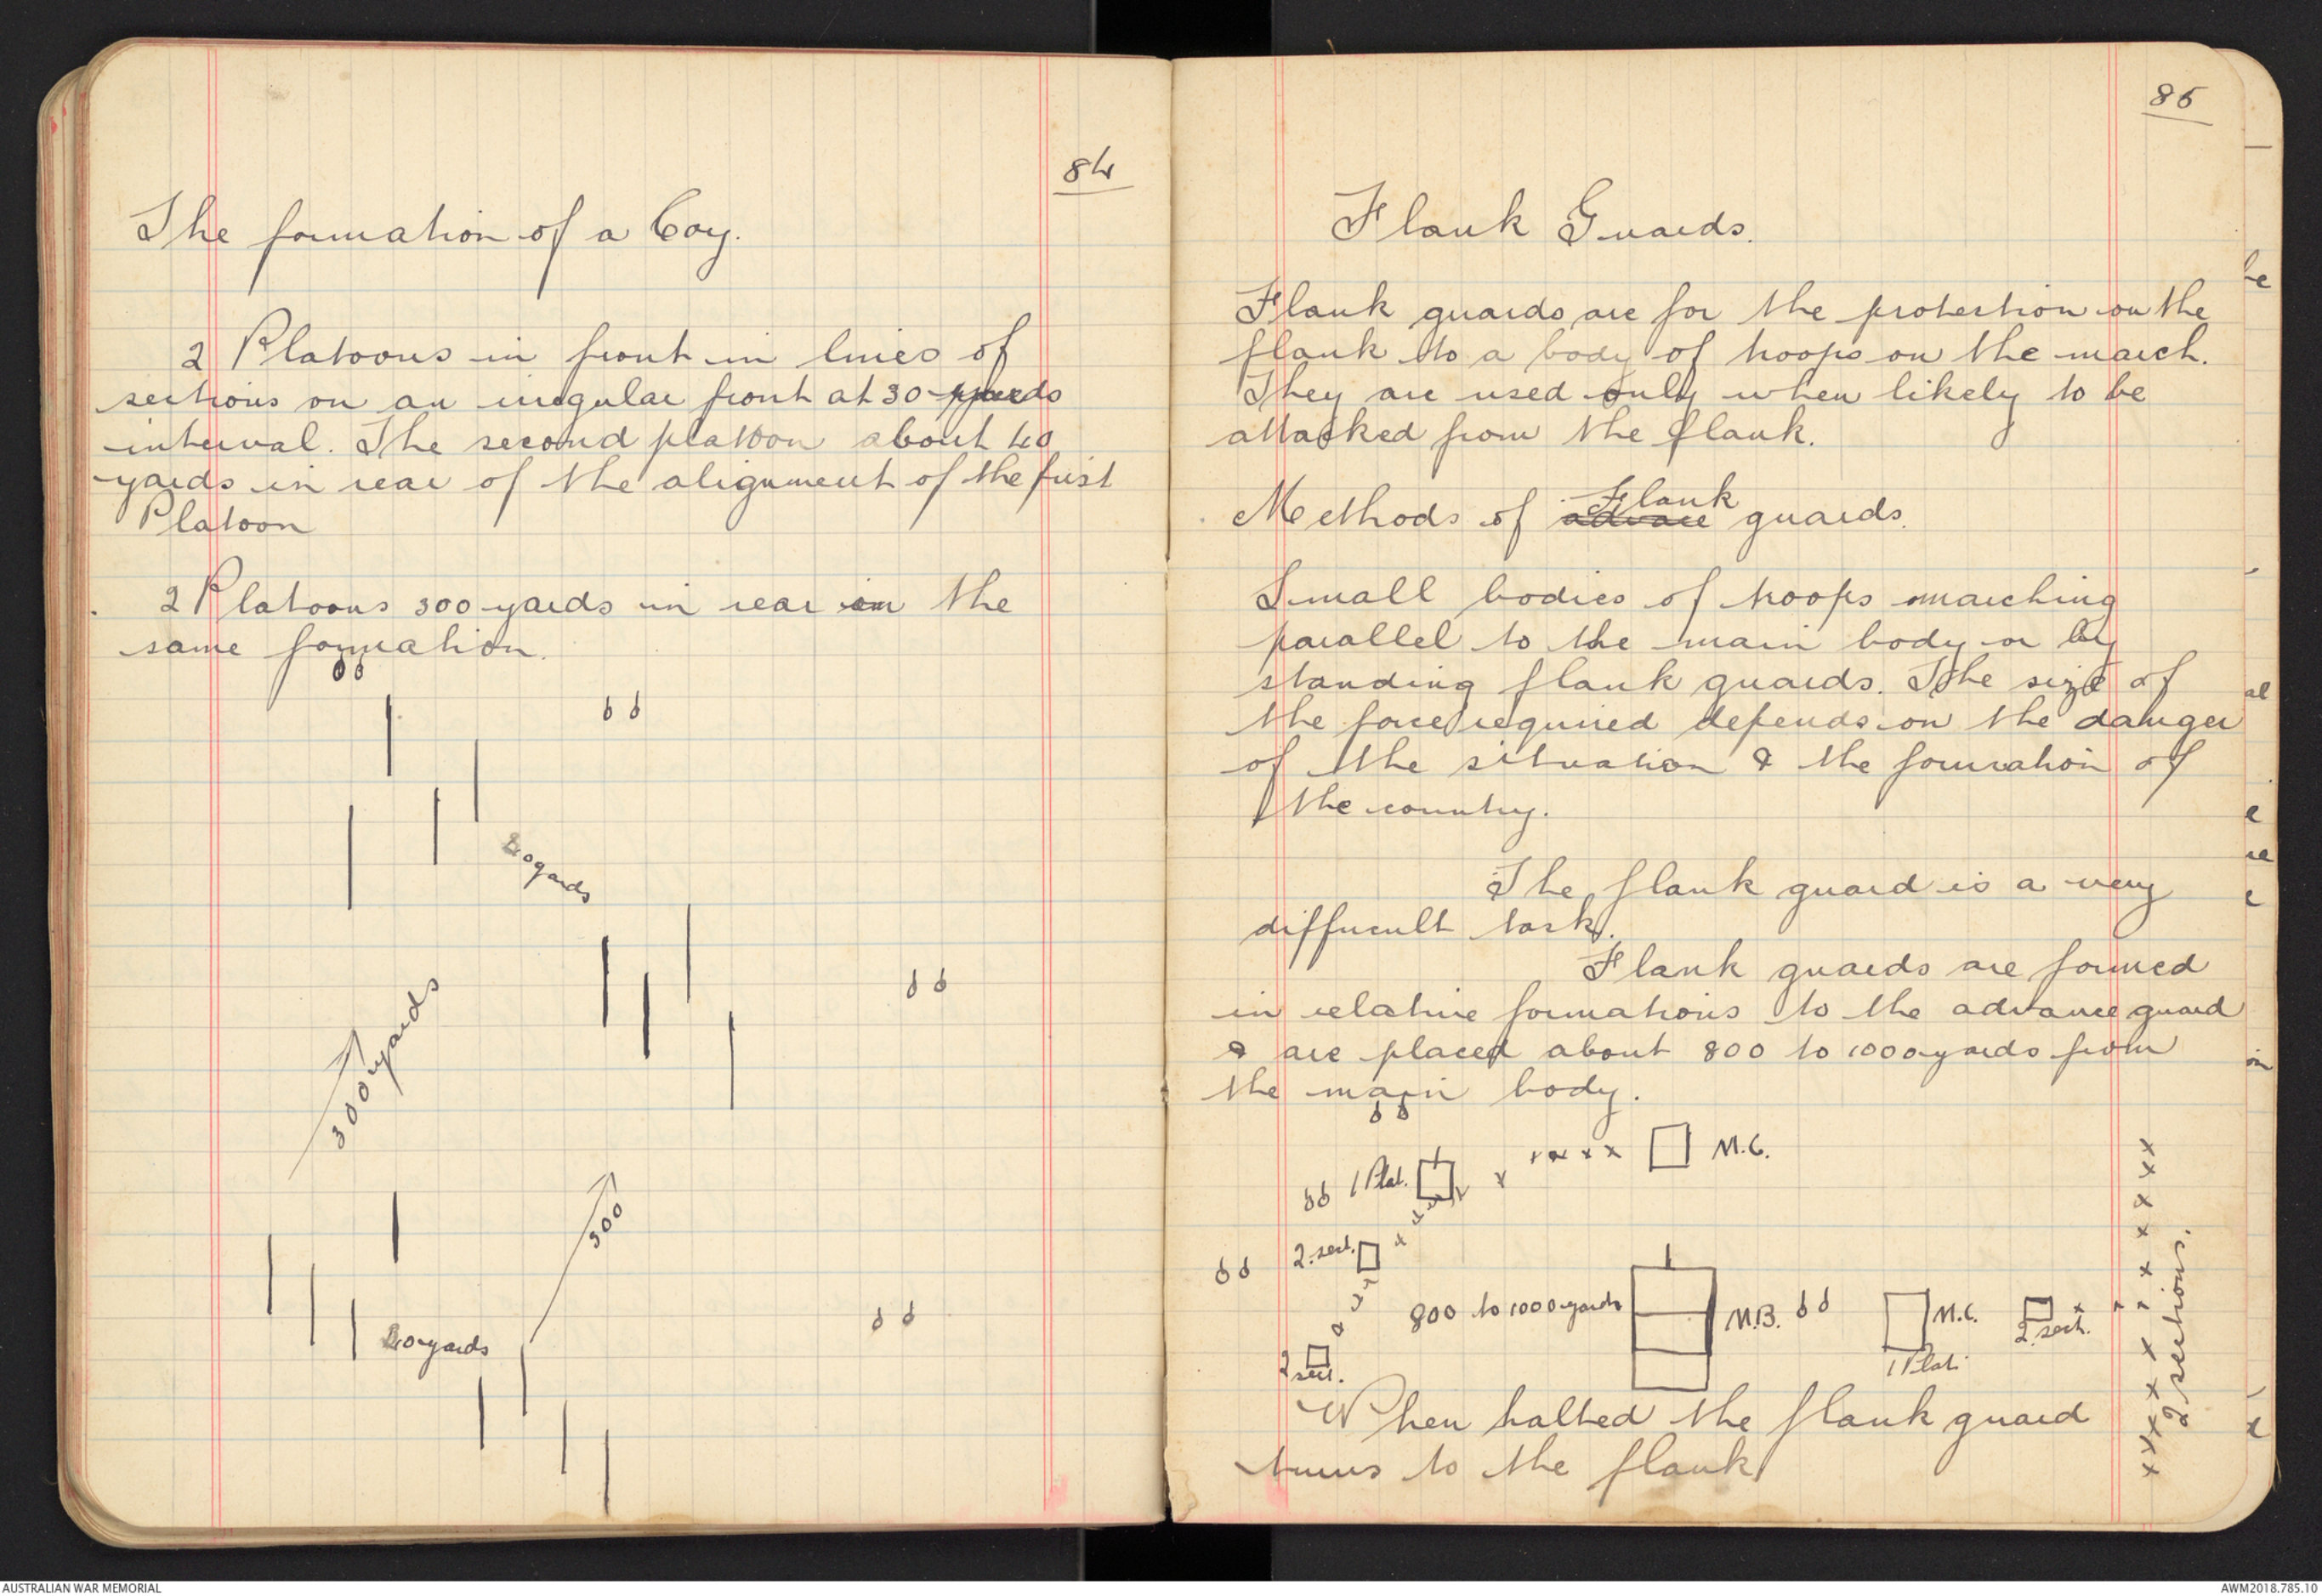 84
The formation of a Coy.
2 Platoons in front in lines of
sections on an irregular front at 30 yards
interval. The second platoon about 40
yards in rear of the alignment of the first
Platoon
2 Platoons 300 yards in rear in the
same formation.
40 yards
300 yards
300
40 yards
85
Flank Guards.
Flank guards are for the protection on the
flank to a body of troops on the march.
They are used only when likely to be
attacked from the flank.
Methods of advace Flank guards.
Small bodies of troops marching
parallel to the main body or by
standing flank guards. The size of
the force required depends on the danger
of the situation & the formation of
the country.
The flank guard is a very
difficult task.
Flank guards are formed
in relative formations to the advance guard
& are placed about 800 to 1000 yards from
the main body.
M.G.
1 Plat.
2. sect.
800 to 1000 yards
M.B.
M.G.
1 Plat.
2. sect.
2 sections.
2 sect.
When halted the flank guard
turns to the flank
AUSTRALIAN WAR MEMORIAL
AWM2018.785.10